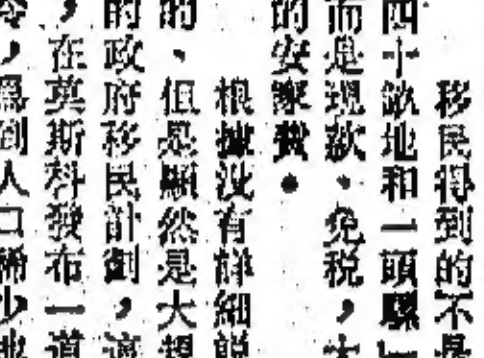 移民得到的不是
四十畝地和一頭騾
而是現款、免稅，
的安家費。
根據沒有詳細說
的、但是顯然是大規
的政府移民計劃，這
，在莫斯科發布一道
，爲到人口稀少地